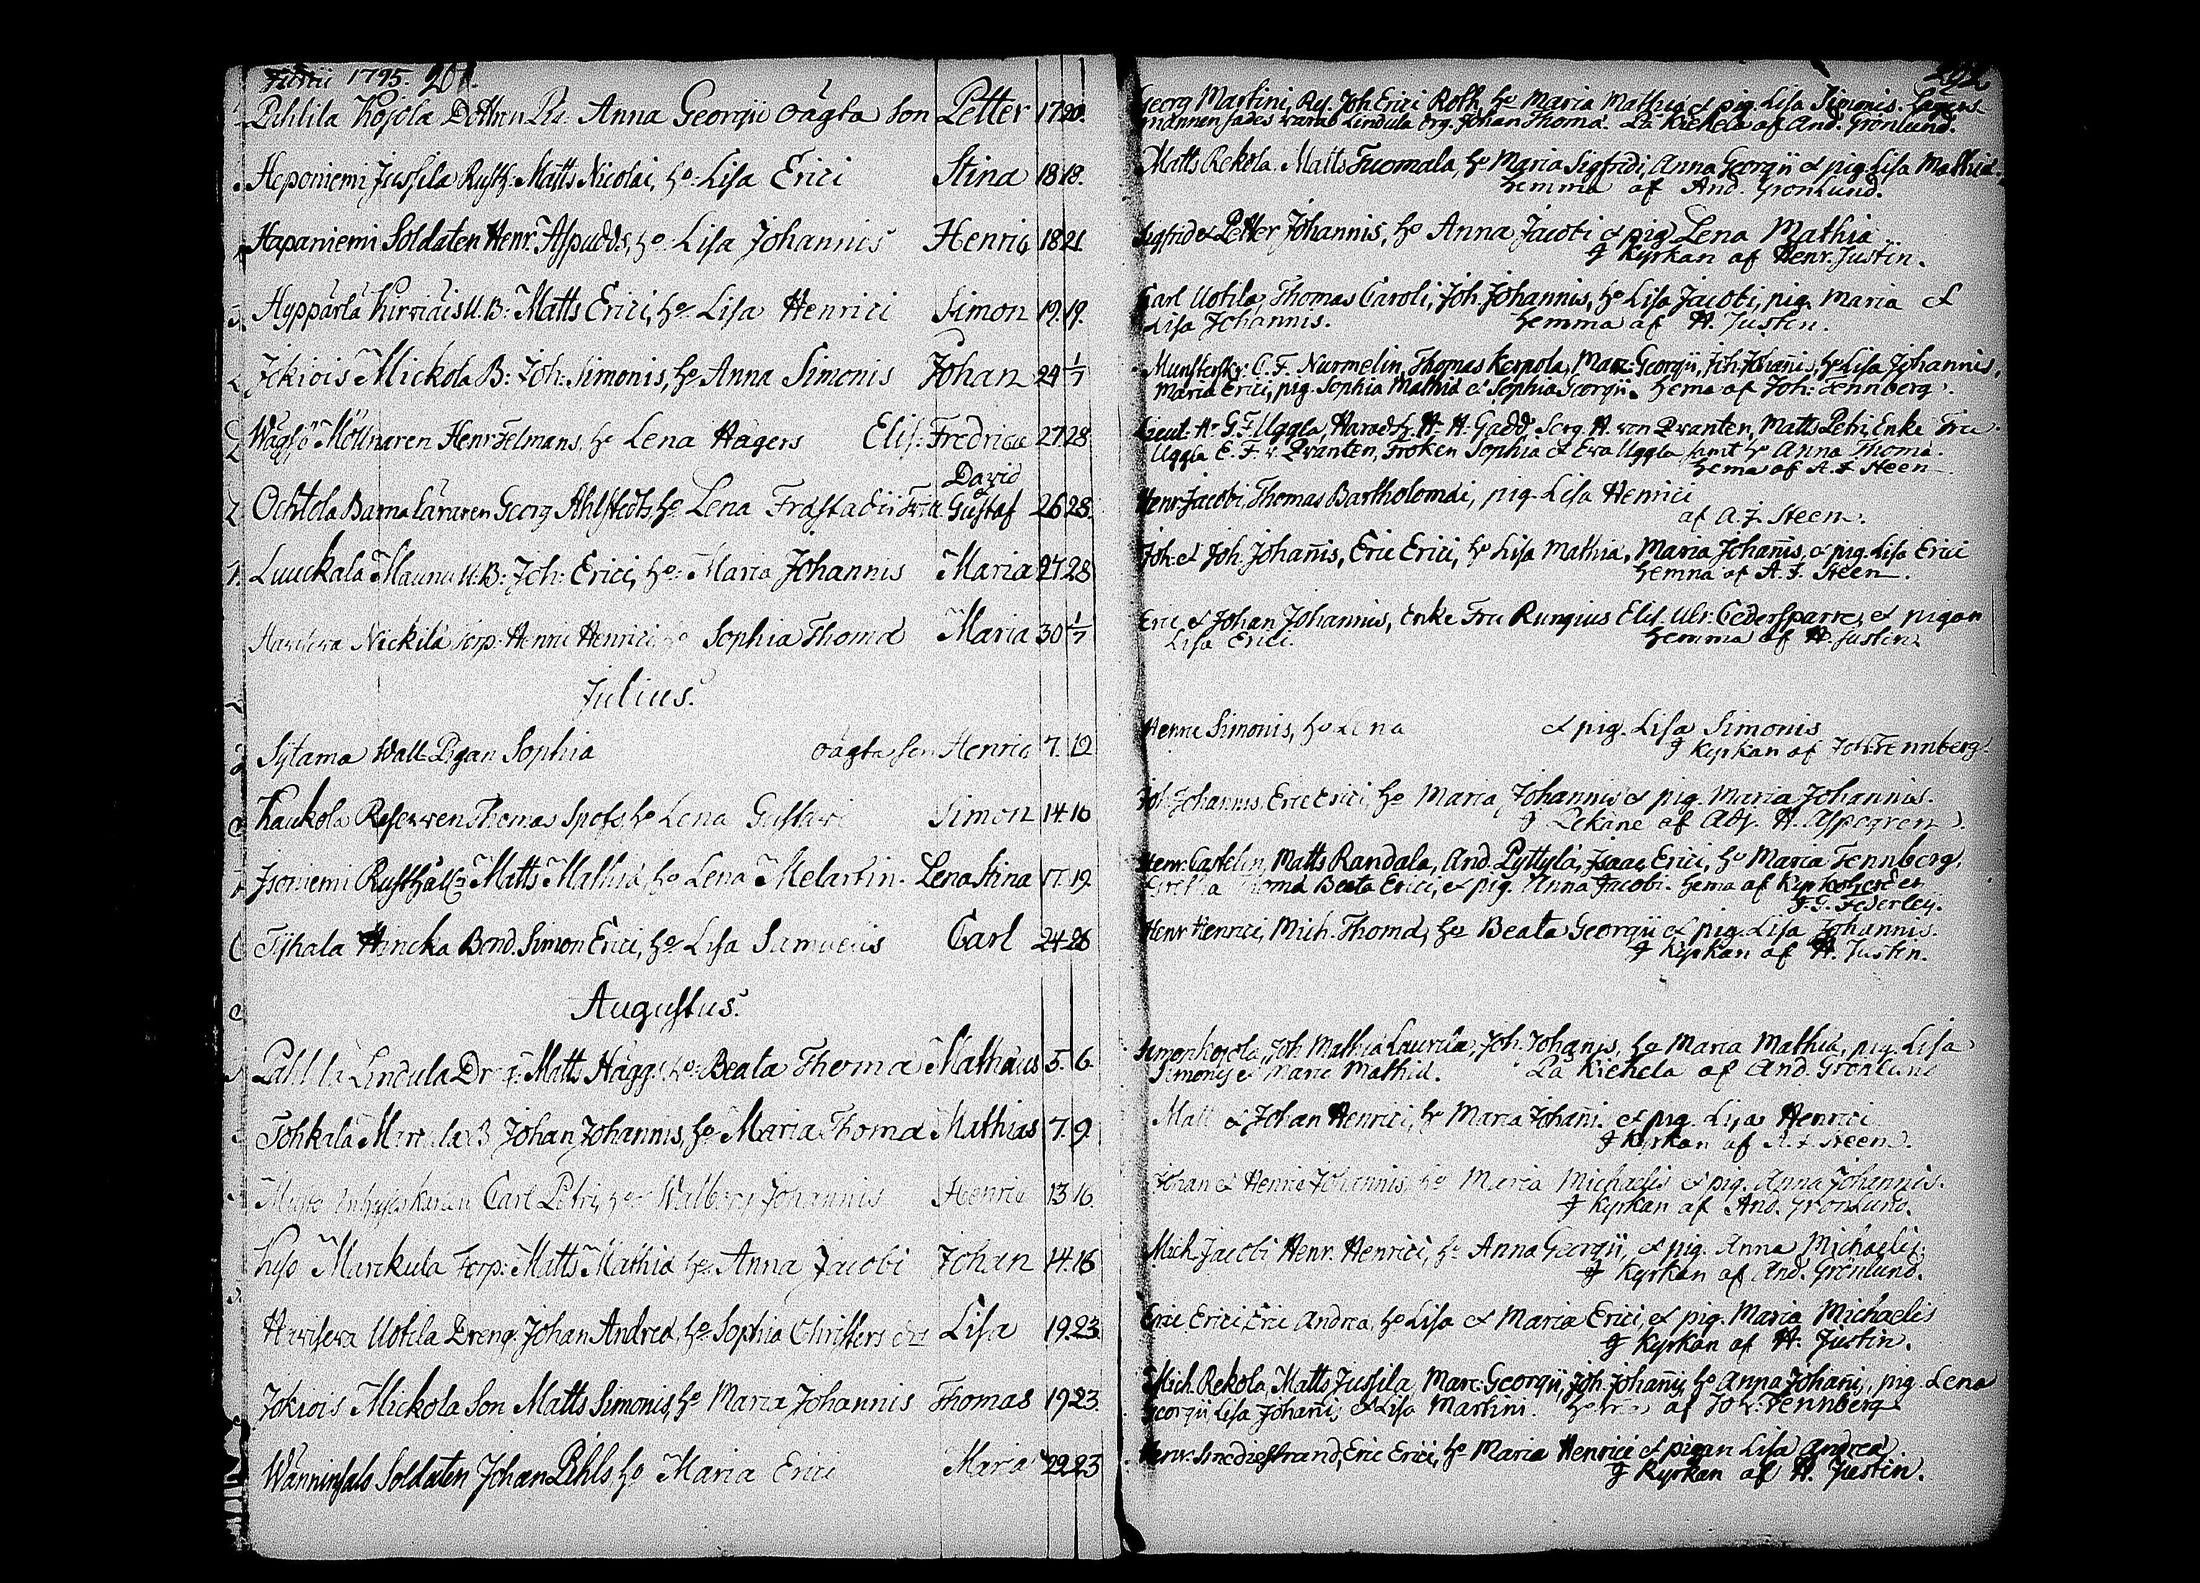 Junii 1795. 201.
Pihlila Kojola Dottren Pig. Anna Georgii oägta Son Petter 17 20.
Haponiemi Jussila Rusth: Matts Nicolai, ho: Lisa Erici Stina 18 19.
Hapaniemi Soldaten Henr. Aspudds, ho. Lisa Johannis Henric 18 21
Hyppärlä Kirriäis U. B: Matts Erici, ho. Lisa Henrici Simon 19. 19.
Jokiois Mickola B: Joh: Simonis, ho Anna Simonis Johan 24 1/7
Wägsjö Möllnaren Henr Felmans, ho Lena Hagers Elis. Fredrica 27 28
David
Ochtola Barnaläraren Georg Ahlstedts, ho. Lena Frastadii Gustaf 26 28.
Luuckala Maunu U. B: Joh: Erici, ho: Maria Johannis Maria 27 28
Nickilä Torp: Henric Henrici, ho Sophia Thomæ Maria 30 1/7
Julius.
Sytama Wall Pigan Sophia oägta son Henric 7. 12
Kaukola Reserven Thomas Spofs, ho Lena Gustavi Simon 14 16
Isoniemi Rusthåll. Matts Mathiæ, ho Lena Melartin. Lena Stina 17. 19.
Tyhala Hincka Bond. Simon Erici, ho. Lisa Samuelis Carl 24 26
Augustus.
Lindula Drag: Matts Häggs, ho: Beata Thomæ Mathæus 5. 6.
Johan Johannis, ho. Maria Thomæ Mathias 7. 9.
Carl Petri, ho Walborg Johannis Henric 13 16.
Marckula Torp: Matts Mathiæ ho. Anna Jacobi Johan 14. 16
Uotila Dreng. Johan Andreæ, ho. Sophia Christers Lisa 19. 23.
Jokiois Mickola Son Matts Simonis, ho Maria Johannis Thomas 19 23.
Wänninsalo Soldaten Johan Pihls ho Maria Erici Maria 22. 23
Georg Martini, Res. Joh. Erici Roth, ho Maria Mathiæ & pig. Lisa Simonis.
Lindula Drg. Johan Thomæ. På Kickela af And. Grönlund.
Matts Rekola. Matts Tuomala, ho Maria Sigfridi, Anna Georgii & pig. Lisa Mathiæ.
hemma af And. Grönlund.
Sigfrid & Petter Johannis, ho Anna Jacobi & pig Lena Mathiæ
J Kyrkan af Henr. Justin.
Carl Uotila, Thomas Caroli, Joh. Johannis, ho Lisa Jacobi, pig. Maria &
Lisa Johannis. hemma af H. Justin.
C. F. Nurmelin, Thomas Kerpola, Marc: Georgii, Joh. Johañis, ho Lisa Johannis,
Maria Erici, pig. Sophia Mathiæ & Sophia Georgii. hema af Joh: Tennberg.
Lieut. Hr G. F. Uggla, Häradsh. Hr H. Gadd. Serg. H. von Qvanten, Matts Petri, Enke Fru
Uggla E. F. v. Qvanten, Fröken Sophia & Eva Uggla samt ho Anna Thomæ.
hema af A. J. Steen
Henr. Jacobi, Thomas Bartholomæi, pig. Lisa Henrici
af A. J. Steen.
Joh. & Joh. Johañis, Eric Erici, ho Lisa Mathiæ, Maria Johañis, & pig. Lisa Erici
hemma af A. J. Steen.
Eric & Johan Johannis, Enke Fru Rungius Elis. Ulr. Cedersparre, & pigan
Lisa Erici. hemma af H. Justin.
Henric Simonis, ho Lena & pig. Lisa Simonis
J Kyrkan af Joh. Tennberg.
Joh. Johannis, Eric Erici, ho Maria Johannis & pig. Maria Johannis.
J af Adj. H. Aspegren.
Henr. Castelin, Matts Randala, And. Pyttylä, Isaac Erici, ho Maria Tennberg,
Thomæ Beata Erici, & pig. Anna Jacobi. hema af Kyrkoherden
J. G. Federley.
Henr Henrici, Mich. Thomæ, ho Beata Georgii & pig. Lisa Johannis.
J Kyrkan af H. Justin.
Simon Kojola, Joh Mathiæ Laurila, Joh. Johanis, ho Maria Mathiæ, pig. Lisa
Simonis & Maria Mathiæ. På Kickela af And. Grönlund
& Johan Henrici, ho Maria Johañi. & pig. Lisa Henrici
J Kyrkan af A. J. Steen.
Johan & Henric Johannis ho Maria Michaelis & pig. Anna Johannis.
J Kyrkan af And. Grönlund.
Mich. Jacobi Henr. Henrici, ho Anna Georgii, & pig. Anna Michaelis.
J Kyrkan af And. Grönlund.
Eric Erici, Eric Andreæ, ho Lisa & Maria Erici, & pig. Maria Michaelis
J Kyrkan af H. Justin.
Mich. Rekola, Matts Jussila, Marc: Georgii, Joh. Johañis, ho Anna Johani, pig. Lena
Georgii, Lisa Johañis & Lisa Martini. af Joh. Tennberg
Henr. Smediestrand, Eric Erici, ho Maria Henrici & pigan Lisa Andreæ
J Kyrkan af H. Justin.